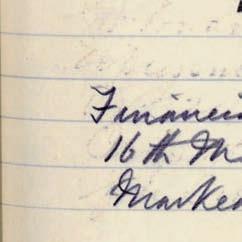 Financi
16th M
Marked